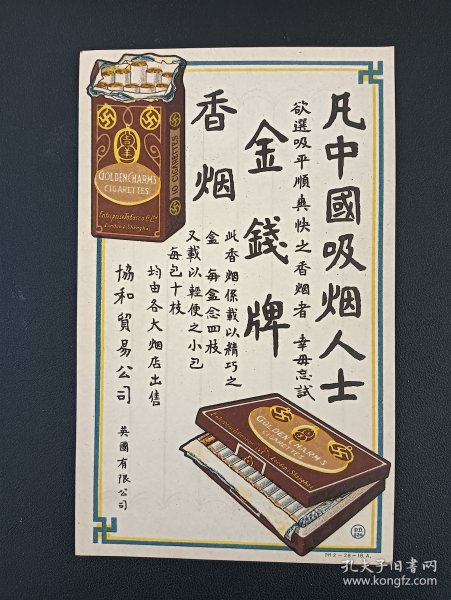 凡中國吸烟人士
欲選吸平順爽快之香烟者 幸毋忘試
金錢牌
香烟
此香烟係載以精巧之
盒 每盒念四枝
又載以輕便之小包
每包十枝
均由各大烟店出售
協和貿易公司 英國有限公司
吉羊
GOLDEN CHARMS
CIGARETTES
Enterprise Tobacco Co Ltd
London & Shanghai
10 CIGARETTES
GOLDEN CHARMS
CIGARETTES
P.D.
M 2-28-16.A.
孔夫子旧书网
www.kongfz.com